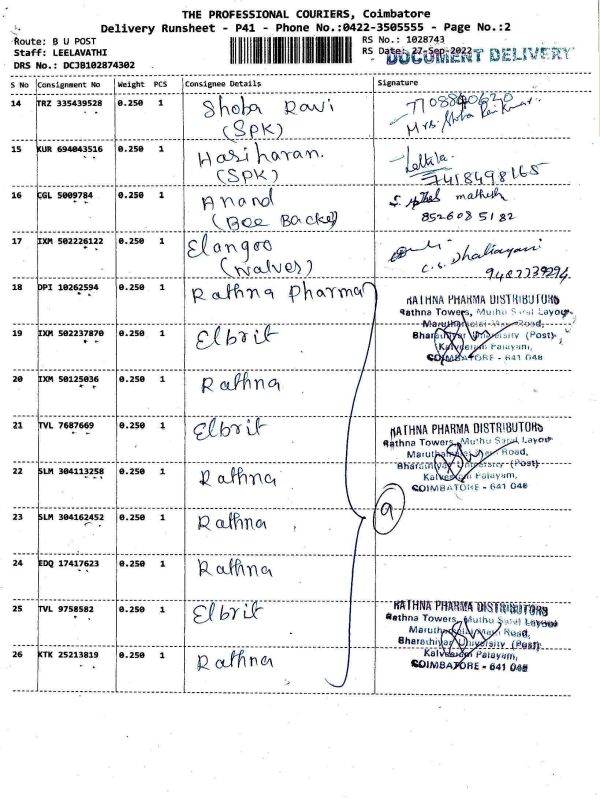 THE PROFESSIONAL COURIERS, Coimbatore
Delivery Runsheet - P41 - Phone No.:0422-3505555 - Page No.:2
Route: B U POST
RS No.: 1028743
Staff: LEELAVATHI
RS Date: 27-Sep-2022
DOCUMENT DELIVERY
DRS No.: DCJB102874302
S No Consignment No Weight PCS Consignee Details Signature
14 TRZ 335439528 0.250 1 Shoba Ravi
(SPK)
7708840630
15 KUR 694043516 0.250 1 Hariharan.
(SPK)
7418498165
16 CGL 5009784 0.250 1 Anand
(Bee Backe)
mathesh
8526085182
17 IXM 502226122 0.250 1 Elangoo
(Valves)
9487739294
18 DPI 10262594 0.250 1 Rathna Pharma
RATHNA PHARMA DISTRIBUTORS
Rathna Towers, Muthu Saral Layout
Maruthamalai Main Road,
Bharathiyar University (Post)
Kalveeram Palayam,
COIMBATORE - 641 046
19 IXM 502237870 0.250 1 Elbrit
20 IXM 50125036 0.250 1 Rathna
21 TVL 7687669 0.250 1 Elbrit
RATHNA PHARMA DISTRIBUTORS
Rathna Towers, Muthu Saral Layout
Maruthamalai Main Road,
Bharathiyar University (Post)
Kalveeram Palayam,
COIMBATORE - 641 046
22 SLM 304113258 0.250 1 Rathna
23 SLM 304162452 0.250 1 Rathna
9
24 EDQ 17417623 0.250 1 Rathna
25 TVL 9758582 0.250 1 Elbrit
RATHNA PHARMA DISTRIBUTORS
Rathna Towers, Muthu Saral Layout
Maruthamalai Main Road,
Bharathiyar University (Post)
Kalveeram Palayam,
COIMBATORE - 641 046
26 KTK 25213819 0.250 1 Rathna